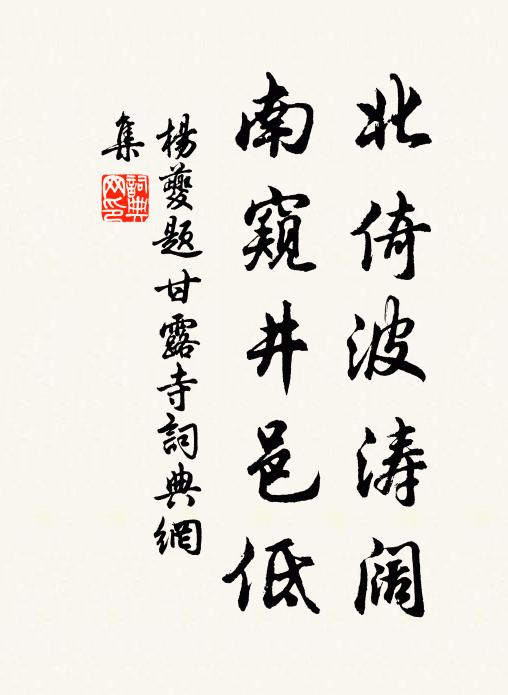 北倚波涛阔
南窺井邑低
楊夔题甘露寺詞典網
集
詞典
网印